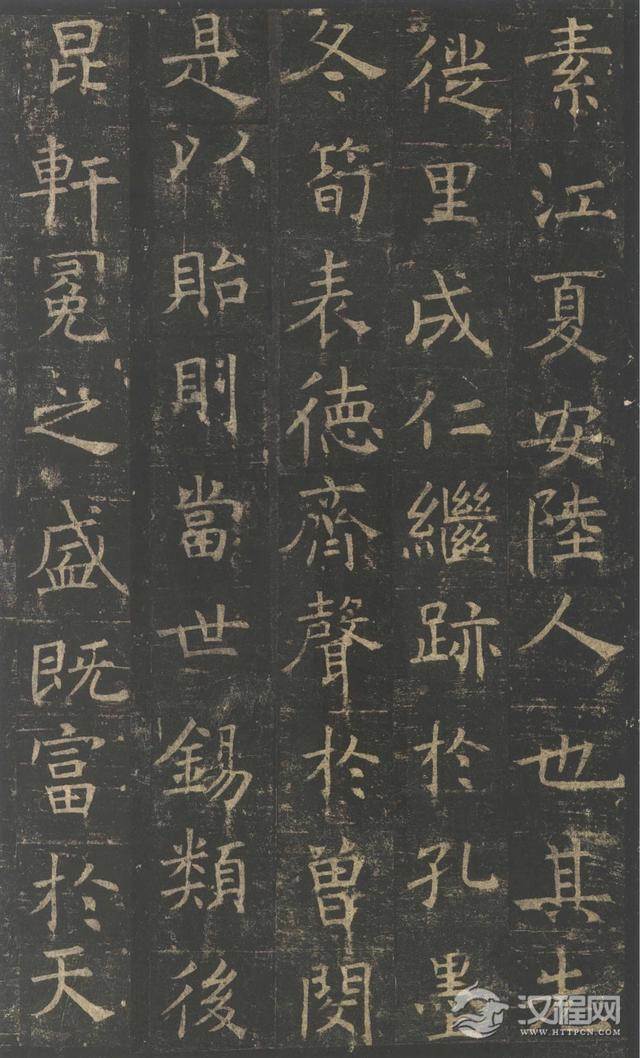 素江夏安陸人也其先
徙里成仁繼跡於孔墨
冬筍表德齊聲於曾閔
是以貽則當世錫類後
昆軒冕之盛既富於天
汉程网
WWW.HTTPCN.COM